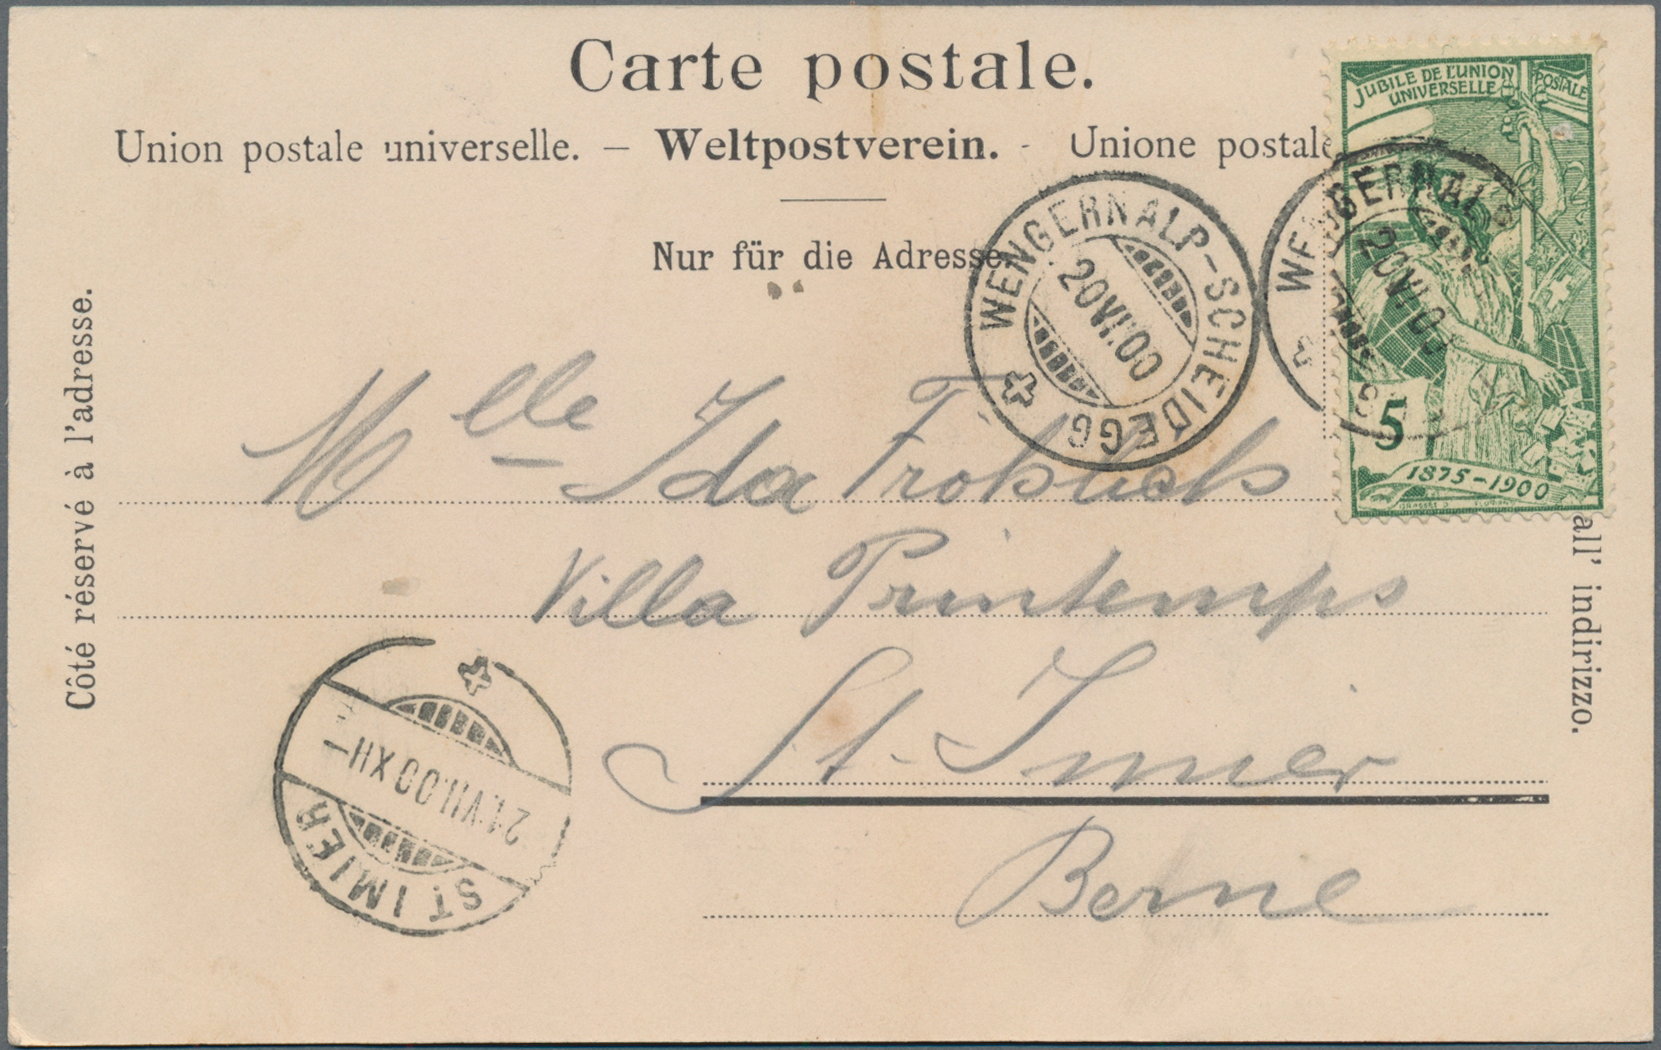 Carte postale.
JUBILE DE L'UNION POSTALE
UNIVERSELLE
Union postale universelle. — Weltpostverein. - Unione postale
Nur für die Adresse.
WENGERNALP-SCHEIDEGG
20 VII.00
WENGERNALP
20 VII.00
5
1875-1900
Côté réservé à l'adresse.
all' indirizzo.
Mlle Ida Fröhlich
Villa Printemps
St. Imier
Berne
21.VII.00 XII-
ST. IMIER